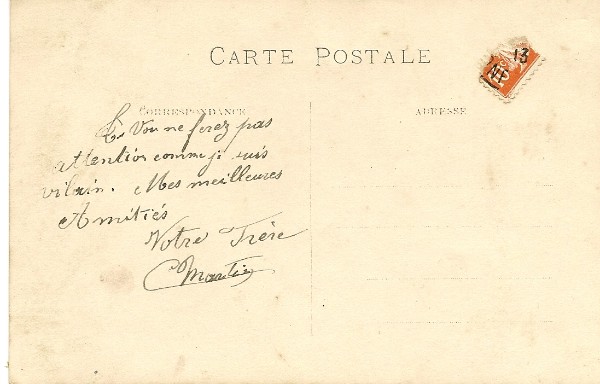 CARTE POSTALE
13
CORRESPONDANCE
ADRESSE
Vous ne ferez pas
attention comme je suis
vilain. Mes meilleures
Amitiés
Votre Frère
Martin